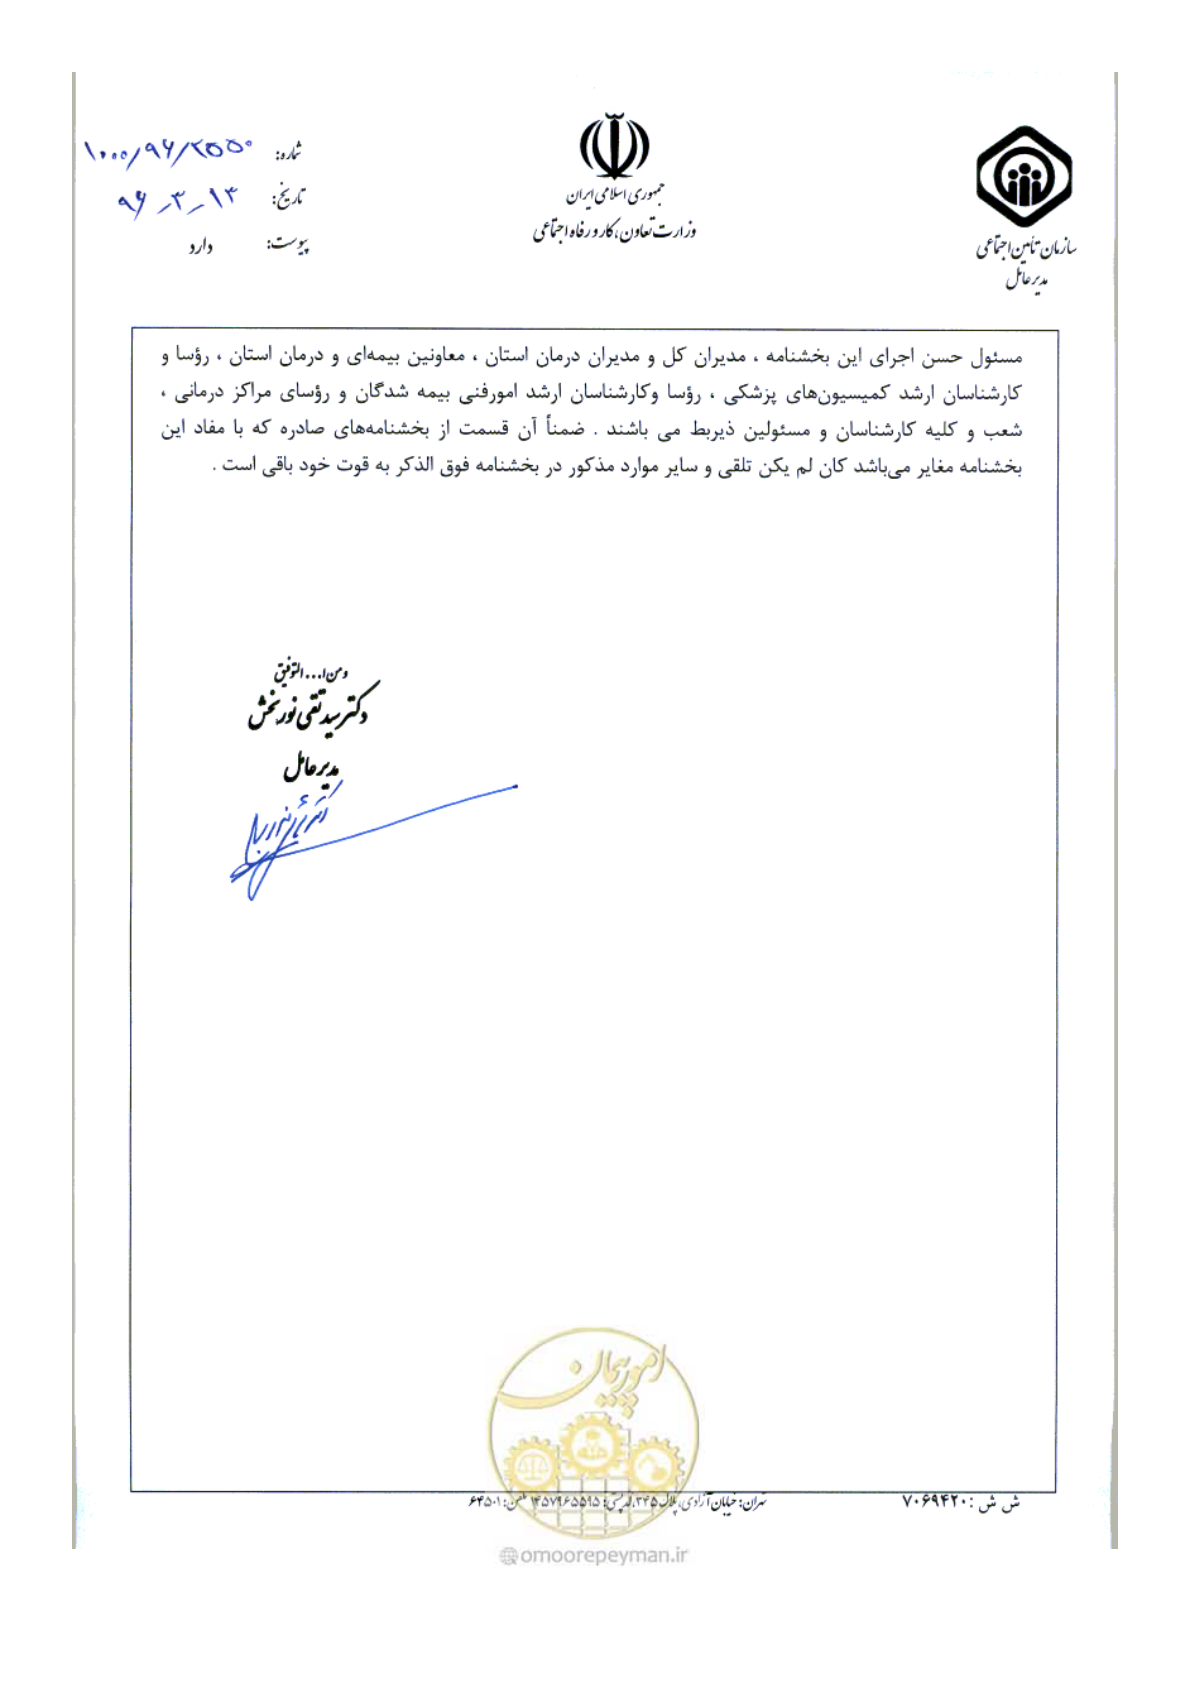 سازمان تأمین اجتماعی
مدیرعامل
جمهوری اسلامی ایران
وزارت تعاون، کار و رفاه اجتماعی
شماره: ۱۰۰۰/۹۶/۲۵۵۰
تاریخ: ۹۶-۳-۱۳
پیوست: دارد
مسئول حسن اجرای این بخشنامه ، مدیران کل و مدیران درمان استان ، معاونین بیمه‌ای و درمان استان ، رؤسا و
کارشناسان ارشد کمیسیون‌های پزشکی ، رؤسا وکارشناسان ارشد امورفنی بیمه شدگان و رؤسای مراکز درمانی ،
شعب و کلیه کارشناسان و مسئولین ذیربط می باشند . ضمناً آن قسمت از بخشنامه‌های صادره که با مفاد این
بخشنامه مغایر می‌باشد کان لم یکن تلقی و سایر موارد مذکور در بخشنامه فوق الذکر به قوت خود باقی است .
ومن ا... التوفیق
دکتر سید تقی نوربخش
مدیرعامل
امور پیمان
ش ش : ۷۰۶۹۴۲۰
تهران: خیابان آزادی، پلاک ۳۴۵، کدپستی: ۱۴۵۷۹۶۵۵۹۵ تلفن: ۶۴۵۰۱
@omoorepeyman.ir